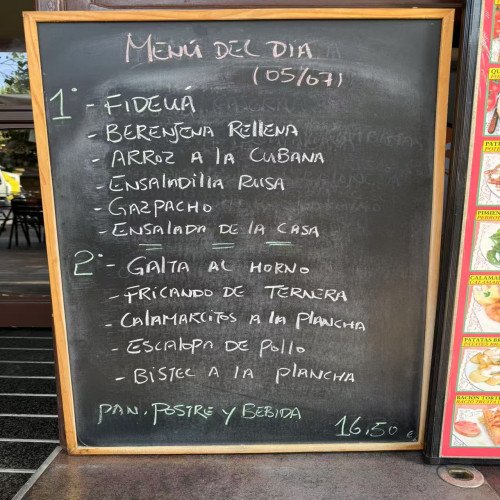 MENÚ DEL DIA
(05/07)
1º - FIDEUÁ
- BERENJENA RELLENA
- ARROZ A LA CUBANA
- ENSALADILLA RUSA
- GAZPACHO
- ENSALADA DE LA CASA
2º - GALTA AL HORNO
- FRICANDO DE TERNERA
- CALAMARCITOS A LA PLANCHA
- ESCALOPA DE POLLO
- BISTEC A LA PLANCHA
PAN, POSTRE Y BEBIDA
16,50 €